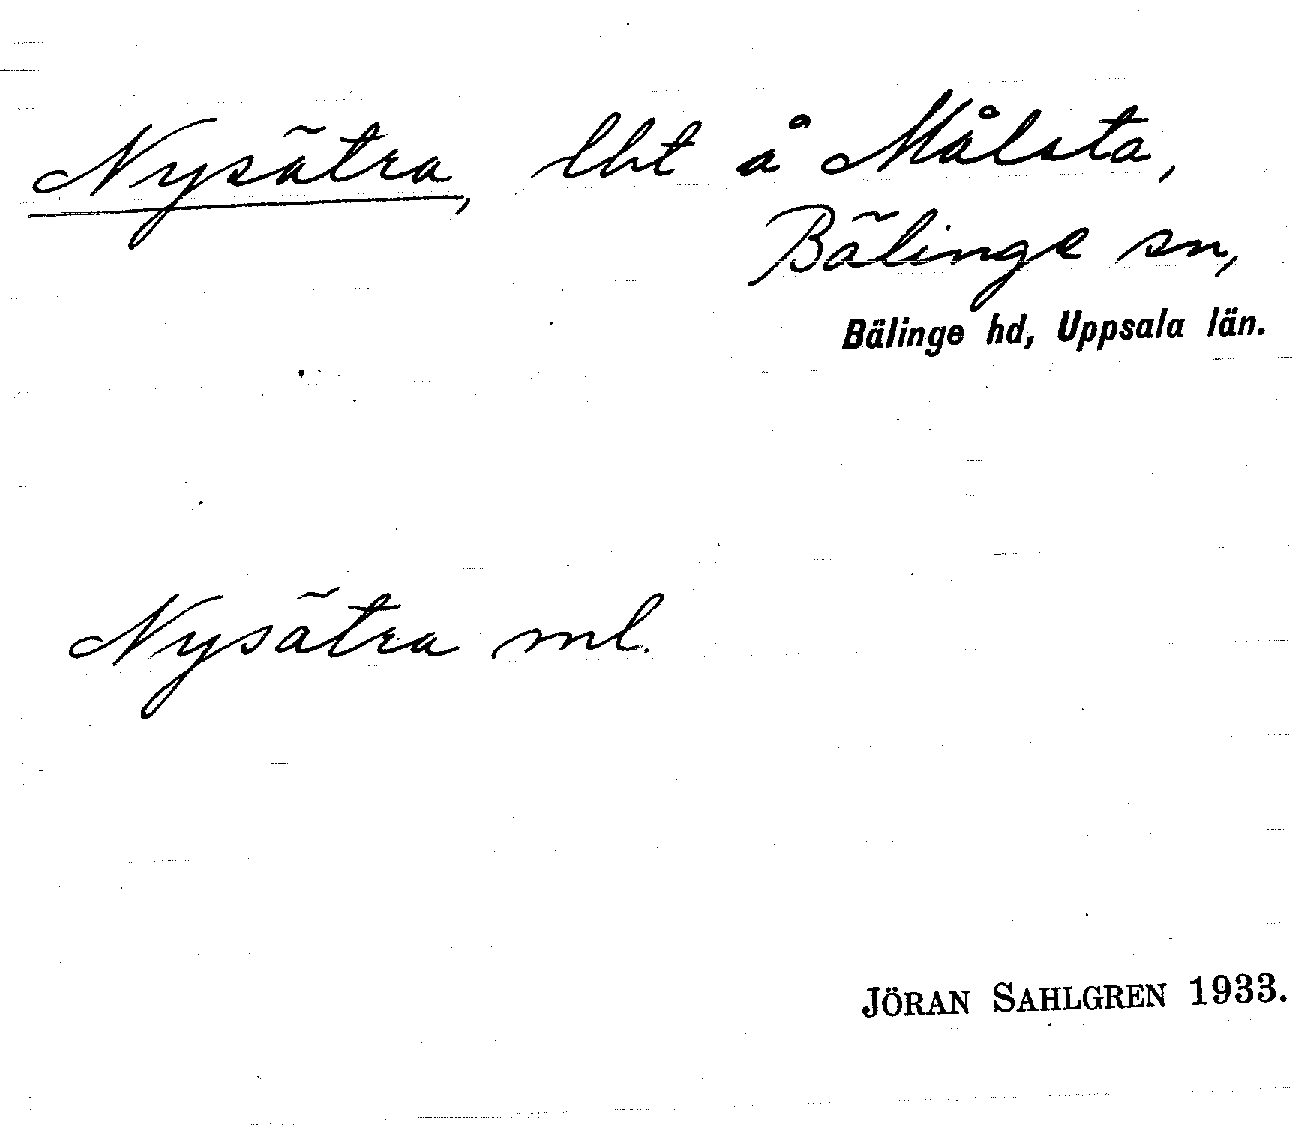 Nysätra, lht å Målsta,
Bälinge sn,
Bälinge hd, Uppsala län.
Nysätra ml.
JÖRAN SAHLGREN 1933.